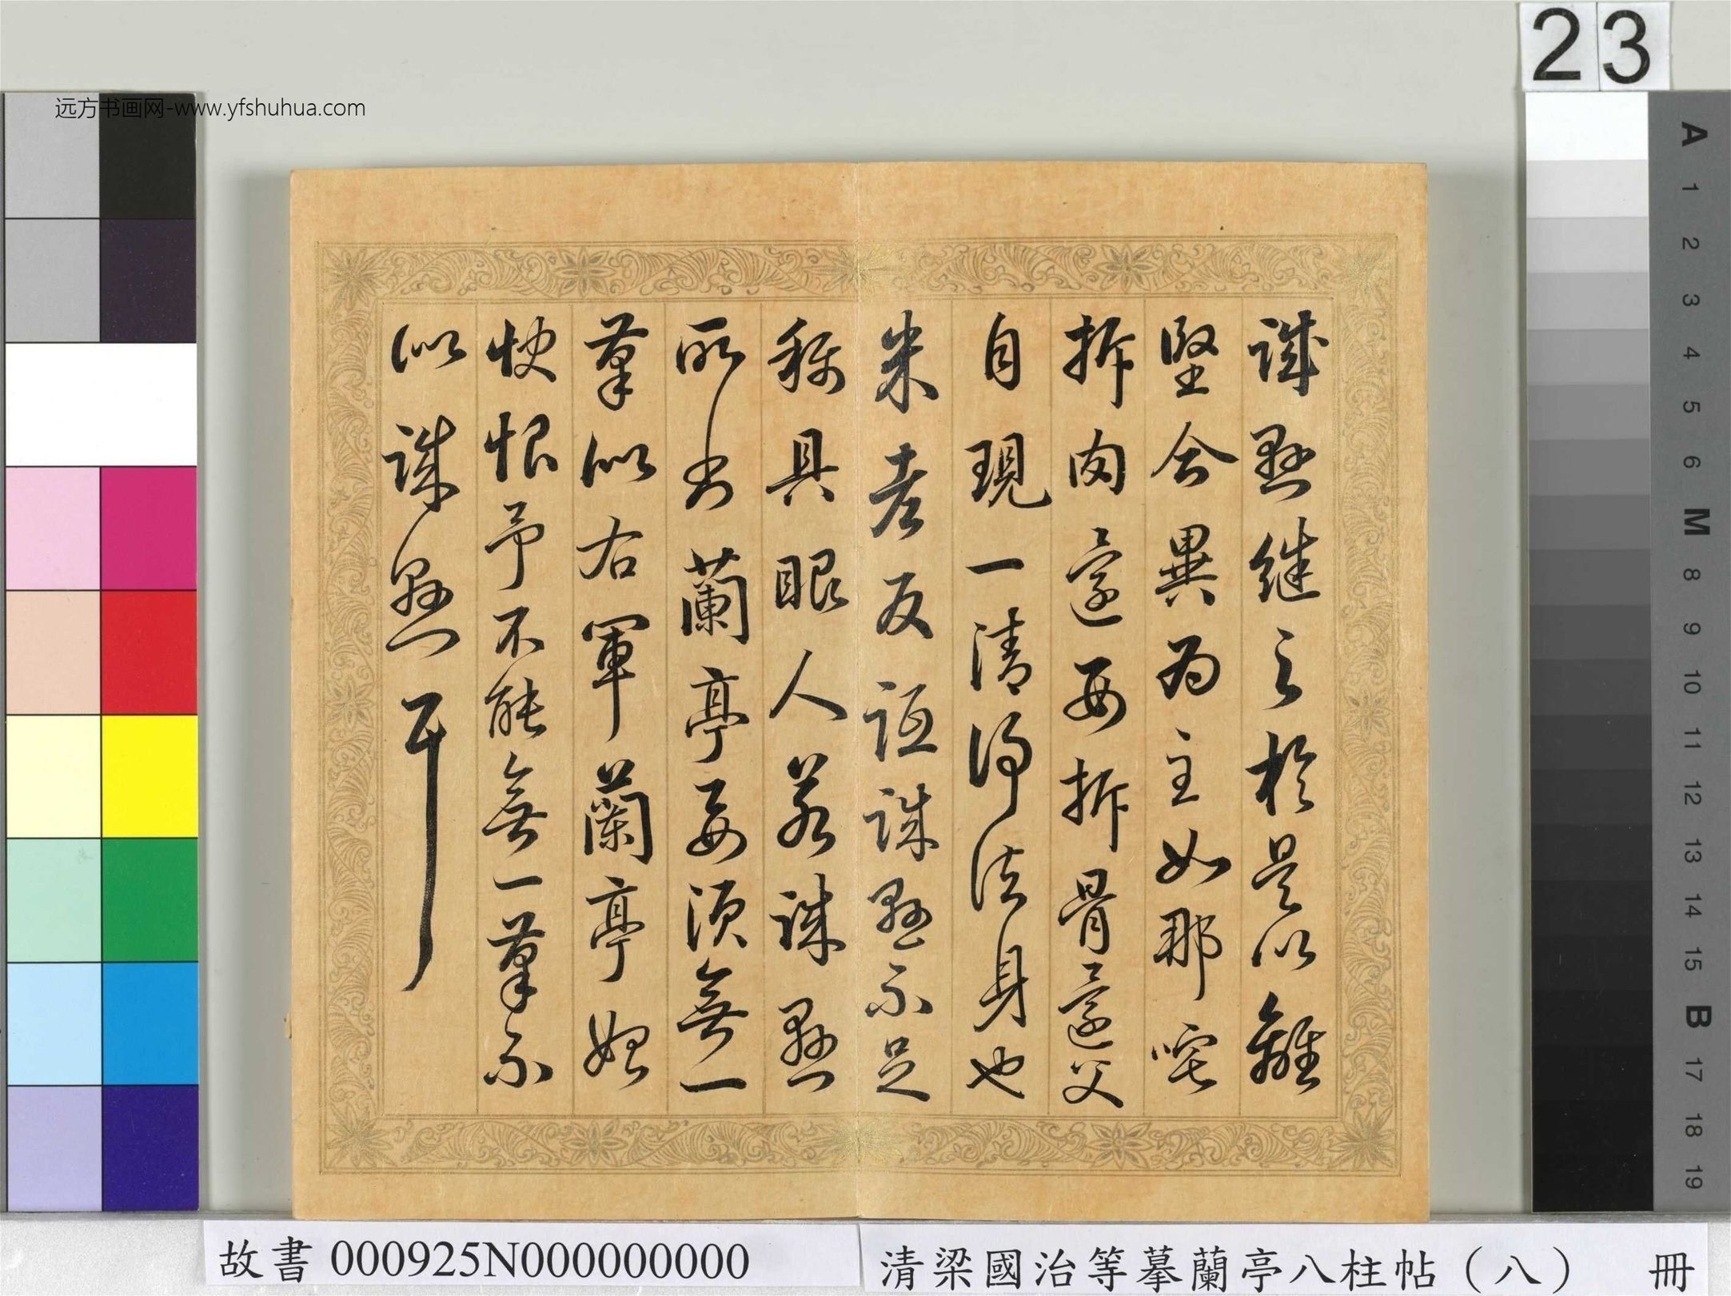 23
远方书画网-www.yfshuhua.com
誠懸継之於是以離
堅合異為主如那吒
拆肉還母拆骨還父
自現一清淨法身也
米老反詆誠懸不足
称具眼人若誠懸
所書蘭亭要須無一
筆似右軍蘭亭始
快恨予不能無一筆不
似誠懸耳
A
1
2
3
4
5
6
M
8
9
10
11
12
13
14
15
B
17
18
19
故書 000925N000000000
清梁國治等摹蘭亭八柱帖（八） 冊